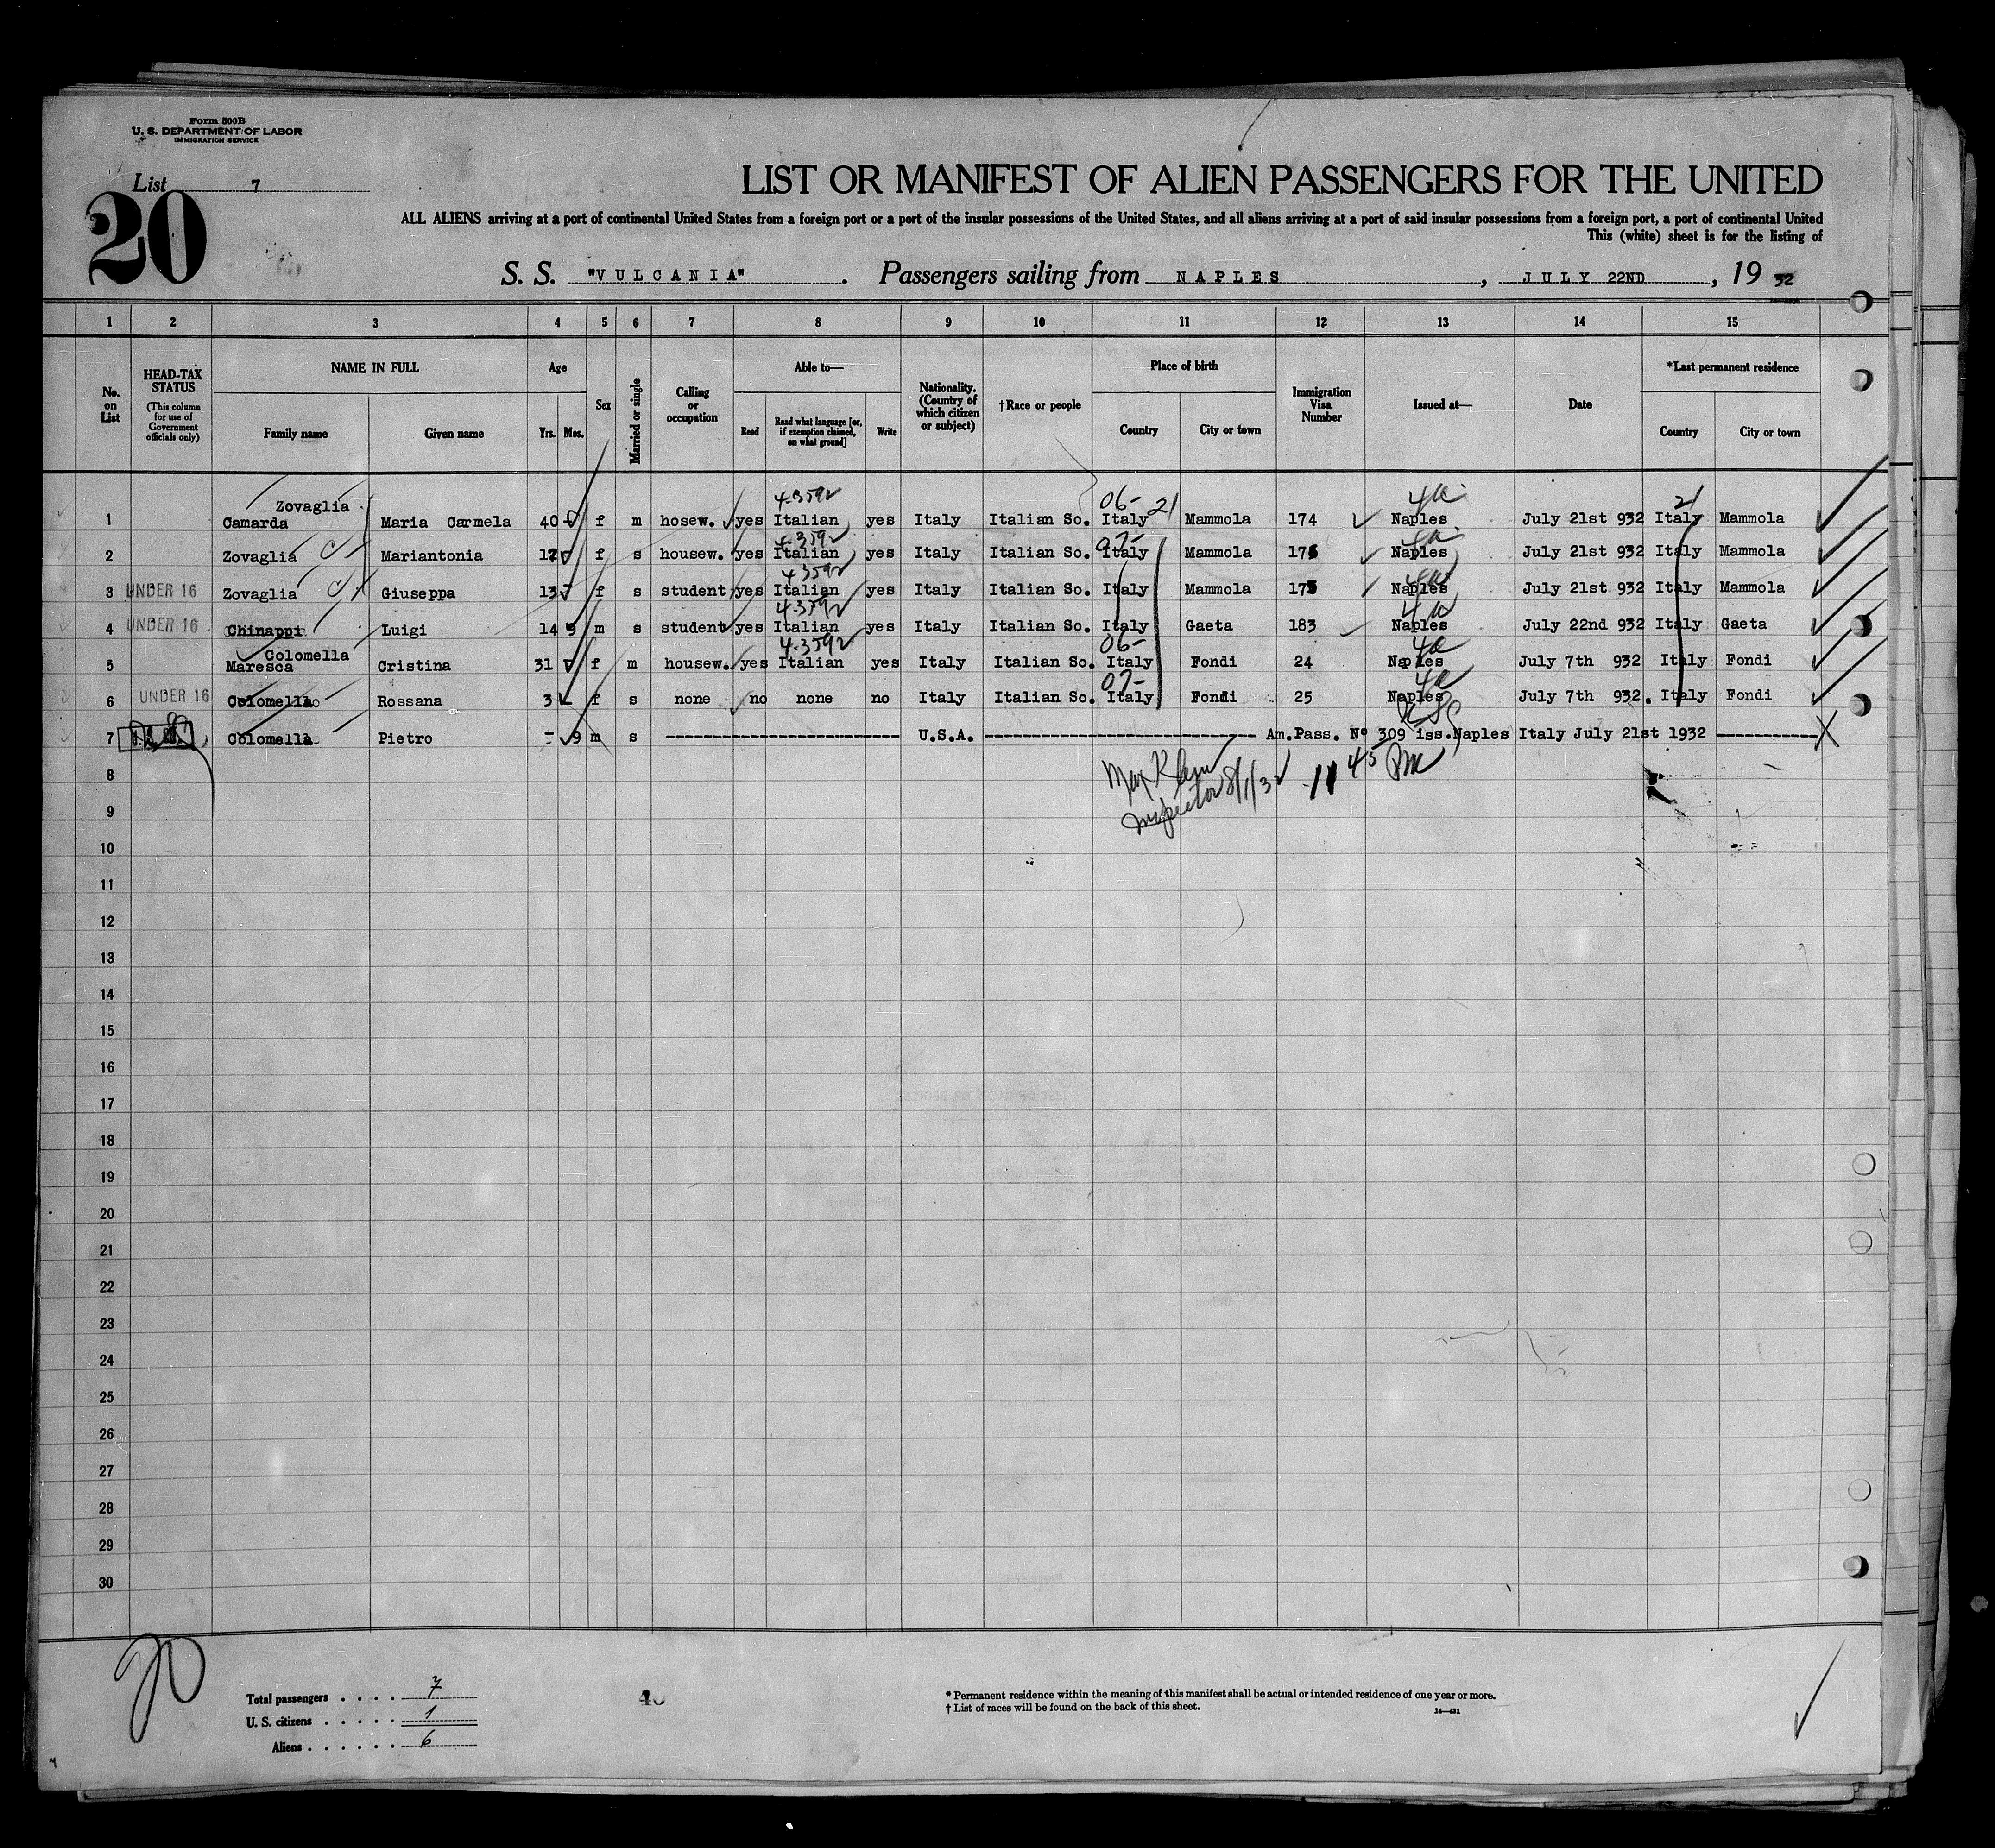 Form 500B
U. S. DEPARTMENT OF LABOR
IMMIGRATION SERVICE
List 7
20
LIST OR MANIFEST OF ALIEN PASSENGERS FOR THE UNITED
ALL ALIENS arriving at a port of continental United States from a foreign port or a port of the insular possessions of the United States, and all aliens arriving at a port of said insular possessions from a foreign port, a port of continental United
This (white) sheet is for the listing of
S. S. "VULCANIA". Passengers sailing from NAPLES, JULY 22ND, 19 32
1 2 3 4 5 6 7 8 9 10 11 12 13 14 15
No. on List
HEAD-TAX STATUS
(This column for use of Government officials only)
NAME IN FULL
Family name Given name
Age
Yrs. Mos.
Sex
Married or single
Calling or occupation
Able to—
Read
Read what language [or, if exemption claimed, on what ground]
Write
Nationality. (Country of which citizen or subject)
†Race or people
Place of birth
Country City or town
Immigration Visa Number
Issued at—
Date
*Last permanent residence
Country City or town
Zovaglia 4-3592 06- 21 21
1 Camarda Maria Carmela 40 f m hosew. yes Italian yes Italy Italian So. Italy Mammola 174 Naples July 21st 932 Italy Mammola
4-3592 07-
2 Zovaglia Mariantonia 17 f s housew. yes Italian yes Italy Italian So. Italy Mammola 176 Naples July 21st 932 Italy Mammola
4-3592
3 UNDER 16 Zovaglia Giuseppa 13 f s student yes Italian yes Italy Italian So. Italy Mammola 175 Naples July 21st 932 Italy Mammola
4-3592
4 UNDER 16 Chinappi Luigi 14 9 m s student yes Italian yes Italy Italian So. Italy Gaeta 183 Naples July 22nd 932 Italy Gaeta
Colomella 4-3592 06-
5 Maresca Cristina 31 f m housew. yes Italian yes Italy Italian So. Italy Fondi 24 Naples July 7th 932 Italy Fondi
07-
6 UNDER 16 Colomella Rossana 3 f s none no none no Italy Italian So. Italy Fondi 25 Naples July 7th 932. Italy Fondi
7 Colomella Pietro - 9 m s ---------- U.S.A. ---------- Am.Pass. Nº 309 iss.Naples Italy July 21st 1932 ----------
8
Max Klein
Inspector 8/1/32 11 45 PM
9
10
11
12
13
14
15
16
17
18
19
20
21
22
23
24
25
26
27
28
29
30
20
Total passengers . . . . 7
U. S. citizens . . . . . 1
Aliens . . . . . . 6
* Permanent residence within the meaning of this manifest shall be actual or intended residence of one year or more.
† List of races will be found on the back of this sheet.
14—421